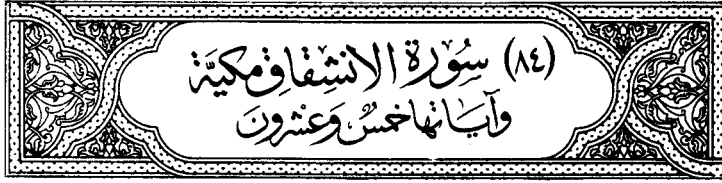 (٨٤) سُورَة الانشِقَاق مَكيَّة
وَآيَاتها خمسٌ وَعشرُونَ